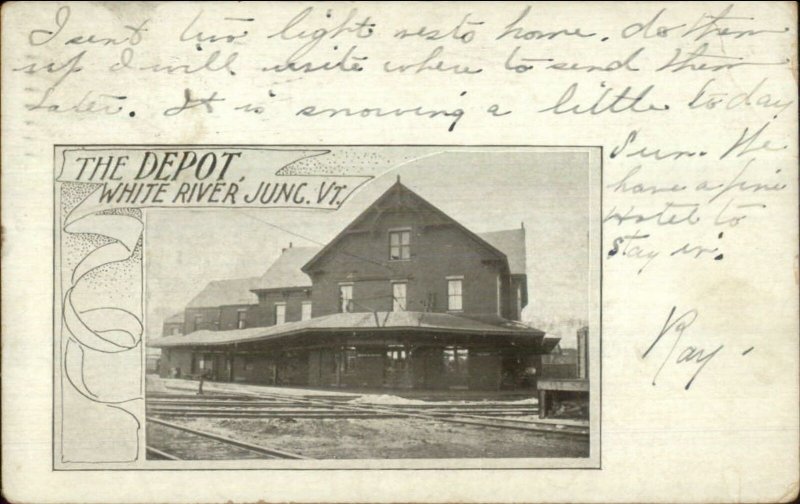 I sent two light vests home. do them
up I will write where to send them
later. It is snowing a little today
Sun. We
have a fine
Hotel to
stay in.
Ray.
THE DEPOT,
WHITE RIVER, JUNC. VT.